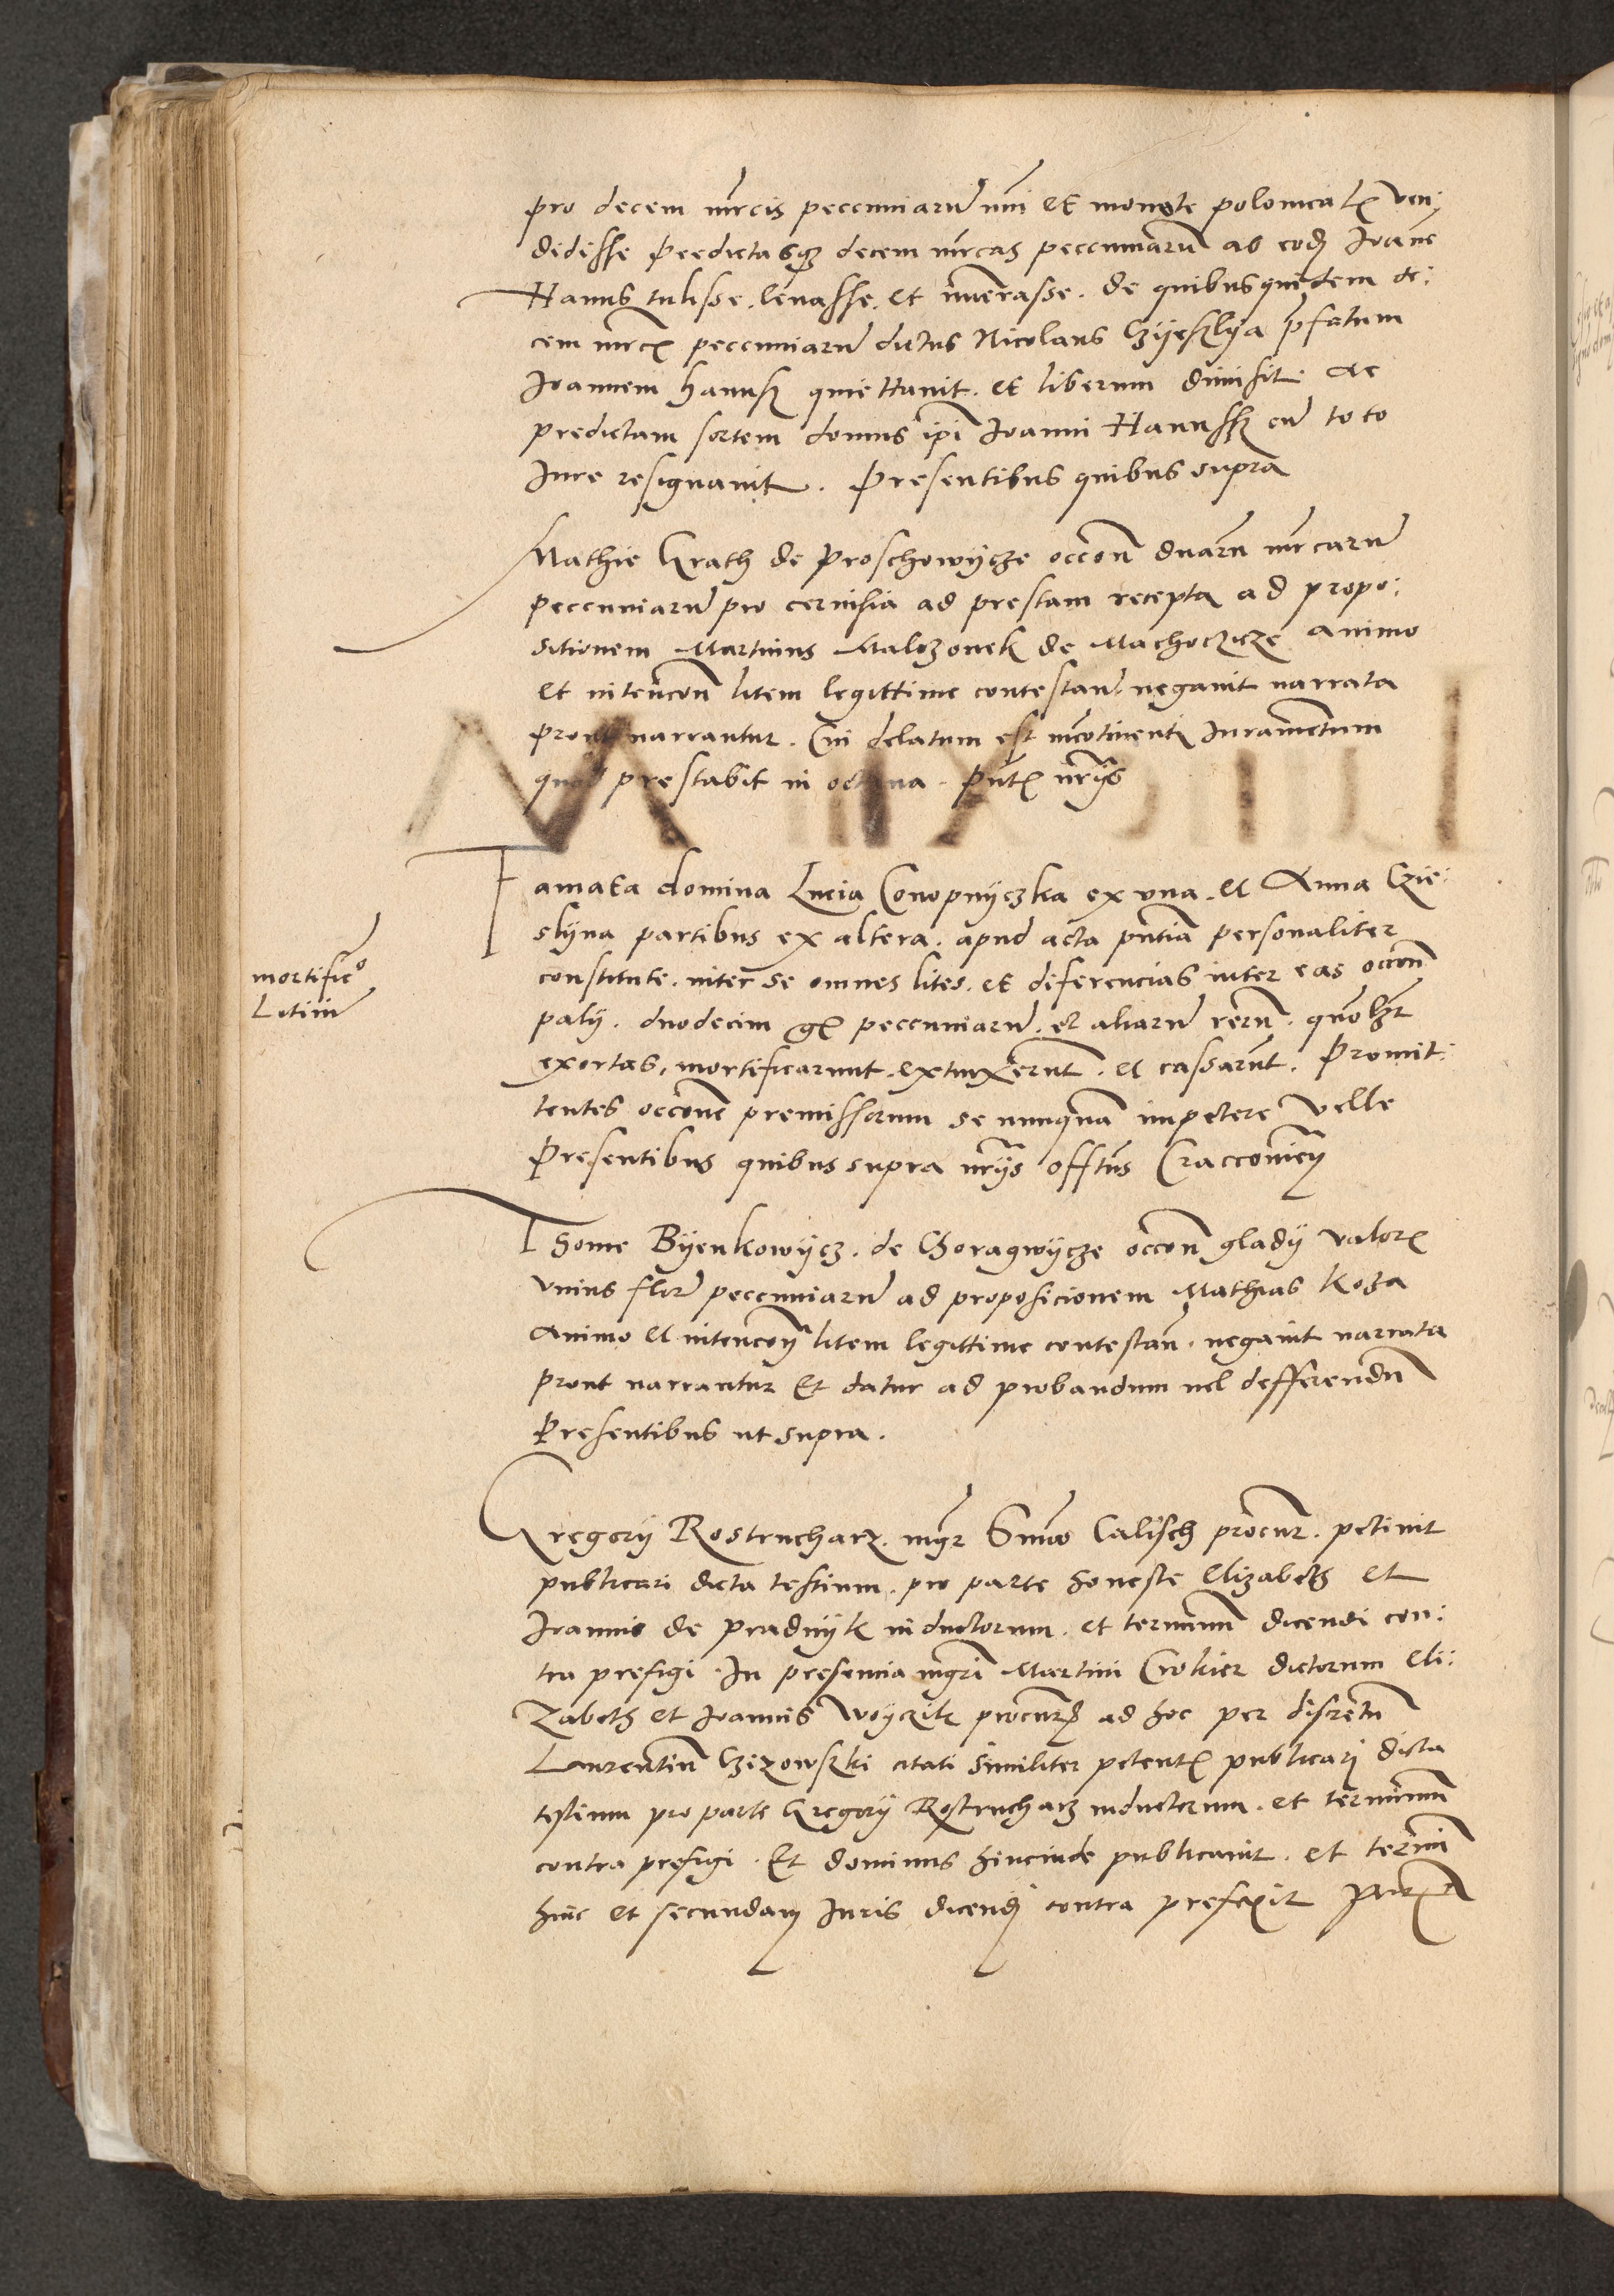 pro decem mrcis peccuniarũ nũi et monete polonicalꝭ ven:
didisse Predictasqꝫ decem mrcas peccuniarũ ab eodẽ Ioãne
Hanus tulisse. levasse. et nũerasse. de quibus quidem de:
cem mrcꝭ peccuniarũ dictus Nicolaus Czyeslya p̃fatum
Ioannem hanusz quiettavit. et liberum dimisit ac
predictam sortem domus ip̃i Ioanni Hanussz cũ toto
Iure resignavit. Presentibus quibus supra
Mathie Grath de Proschowycze occ̃on̄ duarũ mrcarũ
peccuniarũ pro cervisia ad prestam recepta ad propo:
sitionem Martinus Malczonek de Machoczicze animo
et intenc̃on litem legittime contestan̄ negavit narrata
prout narrantur. Cui delatum est incõtinentj Iuramẽtum
quod prestabit in octava. Pñtꝭ nr̃ys
Famata domina Lucia Conopnyczka ex vna. et Anna Czie:
slyna partibus ex altera. apud acta pñtia personaliter
constitute. inter se omnes lites. et diferencias inter eas occ̃on̄
paly. duodecim gꝭ peccuniarũ. et aliarũ rerũ. quõlꝫt
exortas, mortificarunt. extinxerũt. et cassarũt. Promit:
tentes occ̃one premissorum se nunquã impetere velle
Presentibus quibus supra nr̃ys offtus Cracovien̄
mortific°
Litiũ
Thome Byenkowycz. de Choragwycze occ̃on̄ glady valorꝭ
vnius flor̃ peccuniarũ ad proposicionem Mathias Koza
Animo et intenc̃on̄ litem legittime contestan̄. negavit narrata
prout narrantur Et datur ad probandum vel defferendũ
Presentibus ut supra.
Gregory Rostrucharz. mgr̃ Simõ Calisch procur̃. petivit
publicari dicta testium. pro parte honeste Elizabeth et
Ioannis de Pradnyk inductorum. et terminũ dicendi con:
tra prefigi. In presencia mgr̃i Martini Crokier dictorum Eli:
zabeth et Ioannis Woyczik procurꝭ ad hoc per discretũ
Laurentiũ Czizowski citati similiter petentꝭ publicarj dicta
testium pro parte Gregory Rostrucharz inductorum. et terminũ
contra prefigi. Et dominus hincinde publicavit. et termĩ
hinc et secundam Iuris dicendj contra prefixit